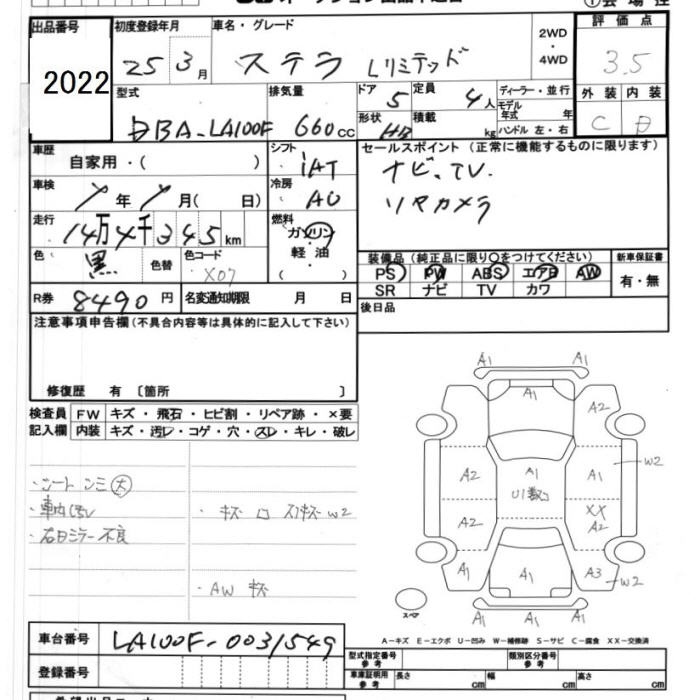 出品番号 初度登録年月 車名・グレード 2WD・4WD 評価点
2022 25 3月 ステラ Lリミテッド 3.5
型式 排気量 ドア 5 定員 4人 ディーラー・並行 外装 内装
DBA-LA100F 660cc 形状 HB 積載 kg モデル年式 年 C D
ハンドル 左・右
車歴 自家用・( ) シフト IAT セールスポイント(正常に機能するものに限ります)
車検 年 月(日) 冷房 ナビ、TV.
走行 14万4千345km 燃料 ガソリン リヤカメラ
軽油
( )
色 黒 色替 色コード X07 装備品(純正品に限り○をつけてください) 新車保証書
PS PW ABS エアB AW 有・無
SR ナビ TV カワ
R券 8490円 名変通知期限 月 日 後日品
注意事項申告欄(不具合内容等は具体的に記入して下さい)
修復歴 有 〔箇所 〕
検査員 FW キズ・飛石・ヒビ割・リペア跡・×要
記入欄 内装 キズ・汚レ・コゲ・穴・スレ・キレ・破レ
A1 A1
A1 A2
A2 A1 A1 W2
XX
A2 A2
A1 A1 A3 W2
A1 A1 A1
・右ドミラー不良
・AW キズ
スペア
A－キズ E－エクボ U－凹み W－補修跡 S－サビ C－腐食 XX－交換済
車台番号 LA100F-0031549
登録番号
型式指定番号 参考 類別区分番号 参考
車庫証明用 参考 長さ cm 幅 cm 高さ cm